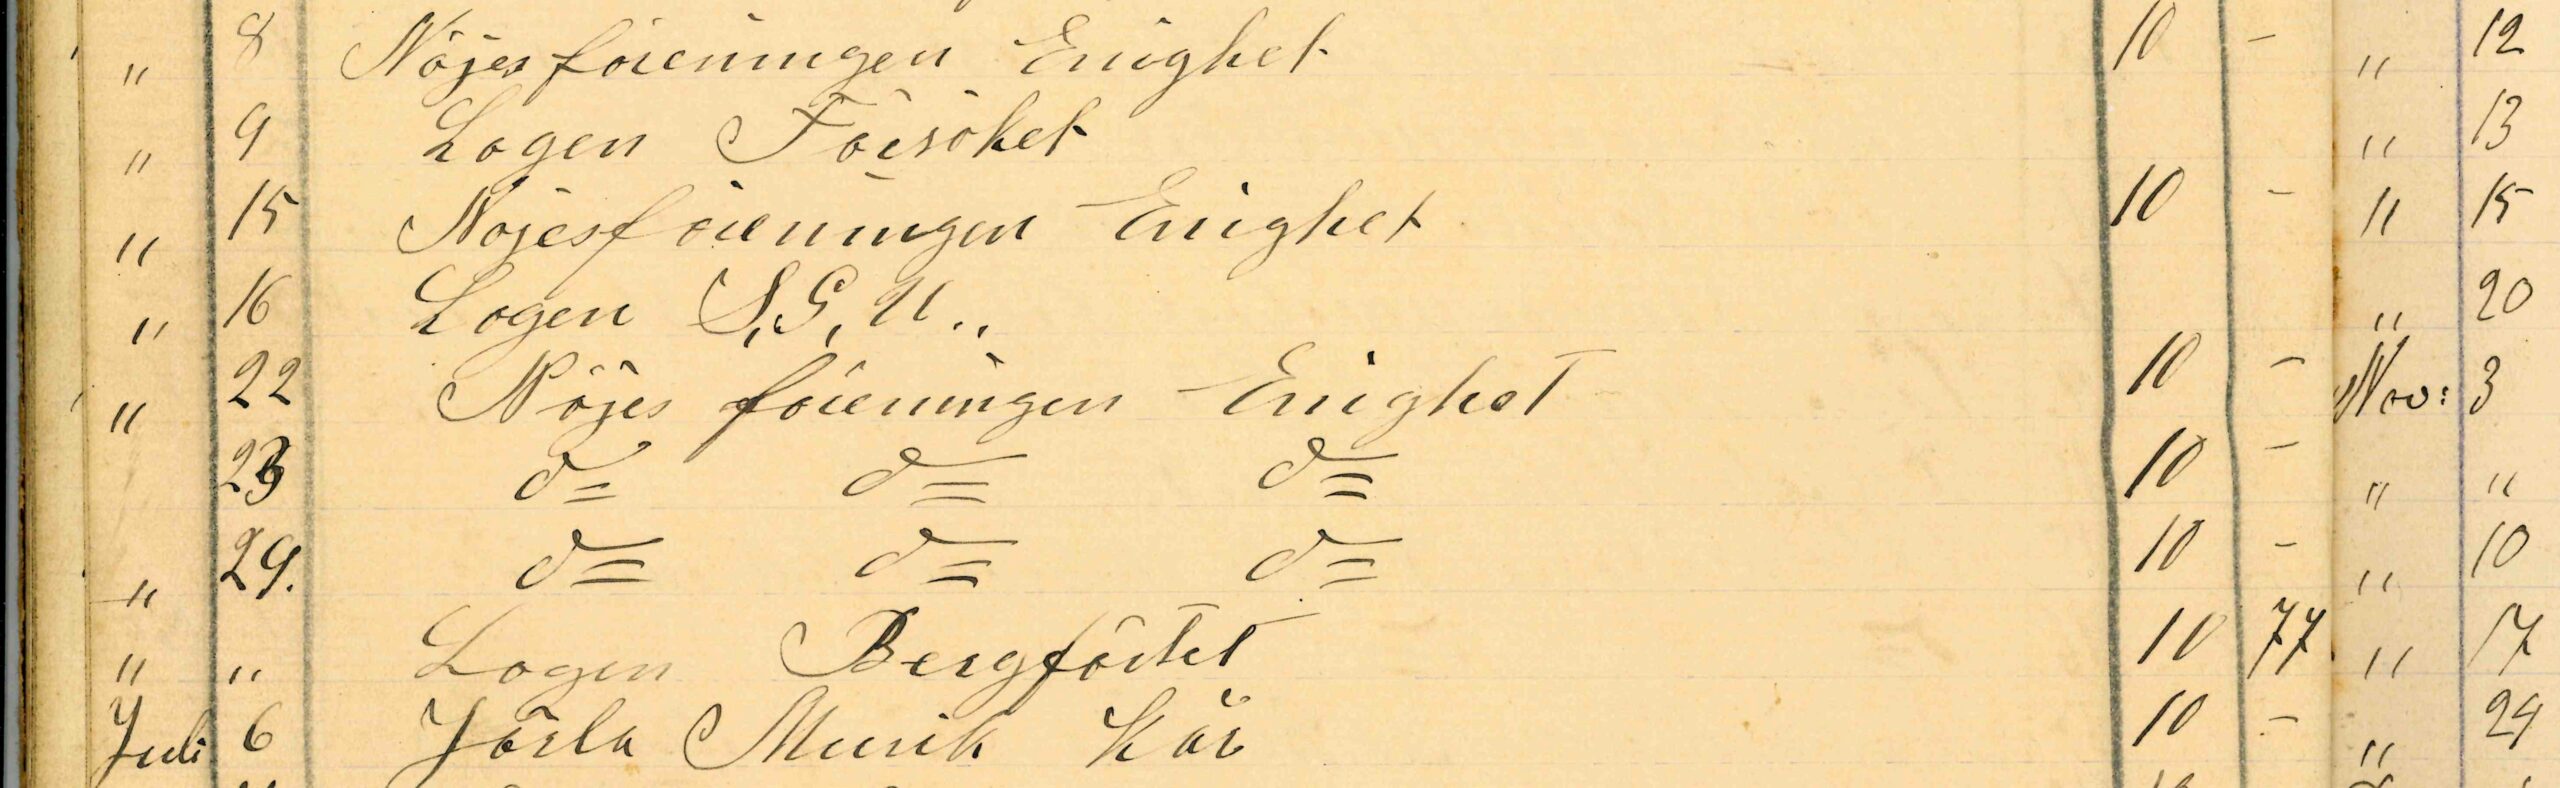 " 8 Nöjesföreningen Enighet 10 - " 12
" 9 Logen Försöket " 13
" 15 Nojesföreningen Enighet 10 - " 15
" 16 Logen S.G.U.. " 20
" 22 Nöjes föreningen Enighet 10 - Nov: 3
23 d= d= d= 10 - " "
" 29. d= d= d= 10 - " 10
" " Logen Bergfästet 10 77 " 17
Juli 6 Järla Musik Kår 10 - " 24